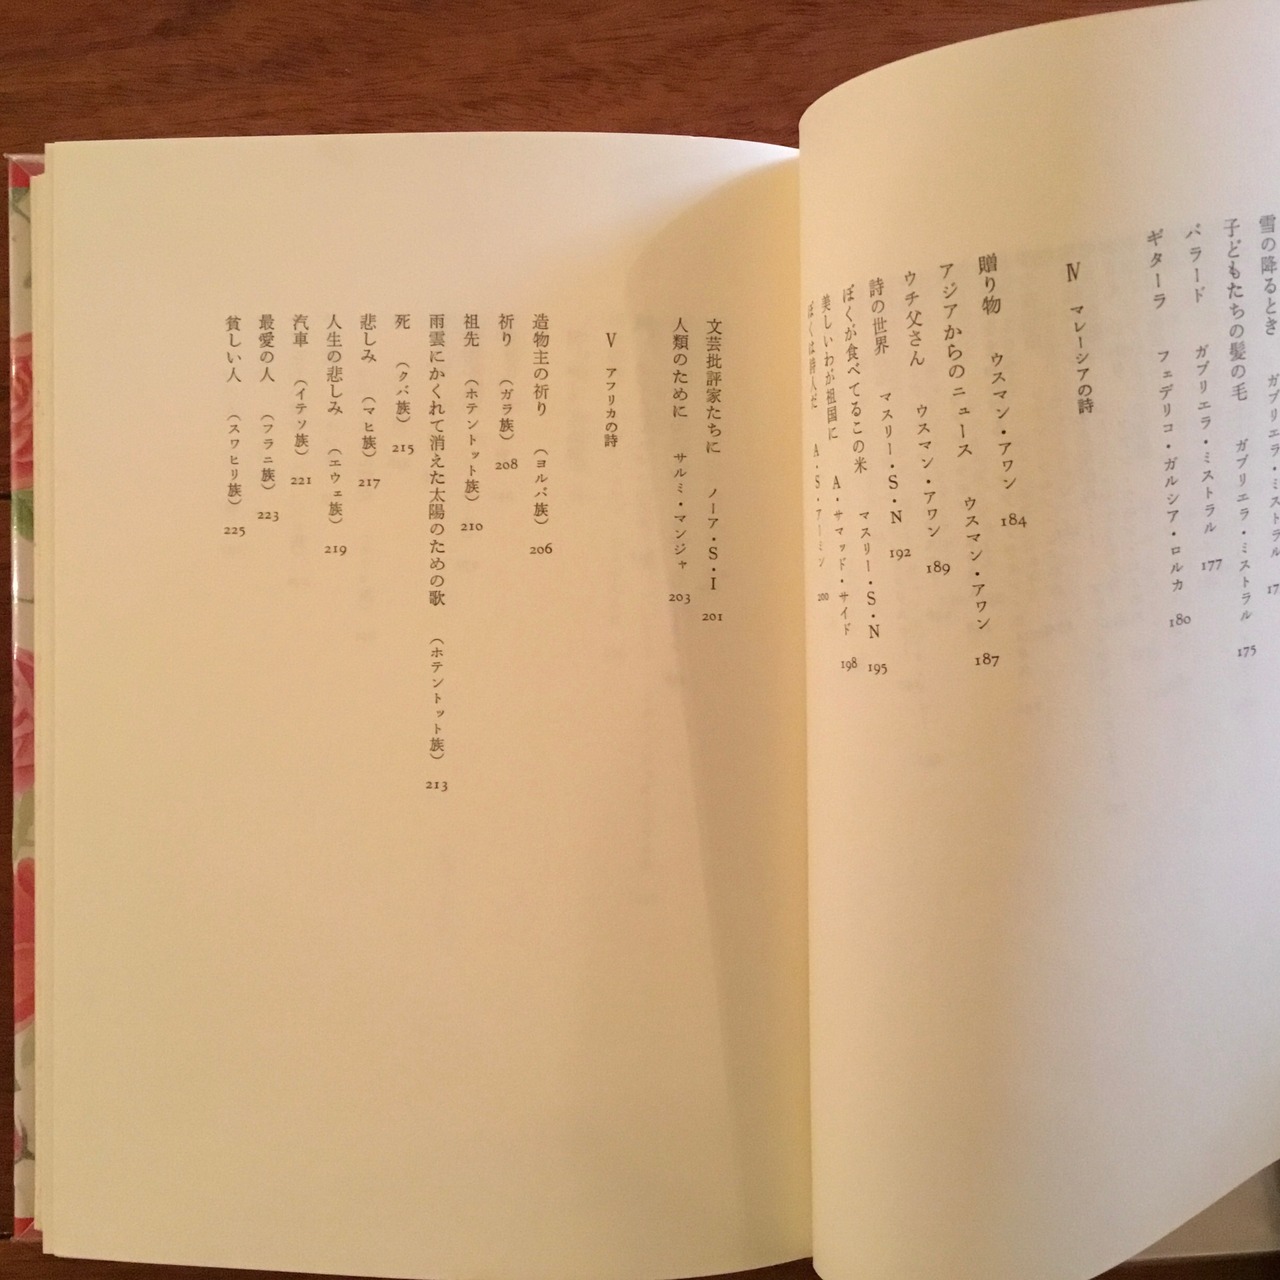 雪の降るとき ガブリエラ・ミストラル
子どもたちの髪の毛 ガブリエラ・ミストラル 175
バラード ガブリエラ・ミストラル 177
ギターラ フェデリコ・ガルシア・ロルカ 180
Ⅳ マレーシアの詩
贈り物 ウスマン・アワン 184
アジアからのニュース ウスマン・アワン 187
ウチ父さん ウスマン・アワン 189
詩の世界 マスリー・S・N 192
ぼくが食べてるこの米 マスリー・S・N 195
美しいわが祖国に A・サマッド・サイド 198
ぼくは詩人だ A・S・アーミン 200
文芸批評家たちに ノーア・S・I 201
人類のために サルミ・マンジャ 203
Ⅴ アフリカの詩
造物主の祈り (ヨルバ族) 206
祈り (ガラ族) 208
祖先 (ホテントット族) 210
雨雲にかくれて消えた太陽のための歌 (ホテントット族) 213
死 (クバ族) 215
悲しみ (マヒ族) 217
人生の悲しみ (エウェ族) 219
汽車 (イテソ族) 221
最愛の人 (フラニ族) 223
貧しい人 (スワヒリ族) 225